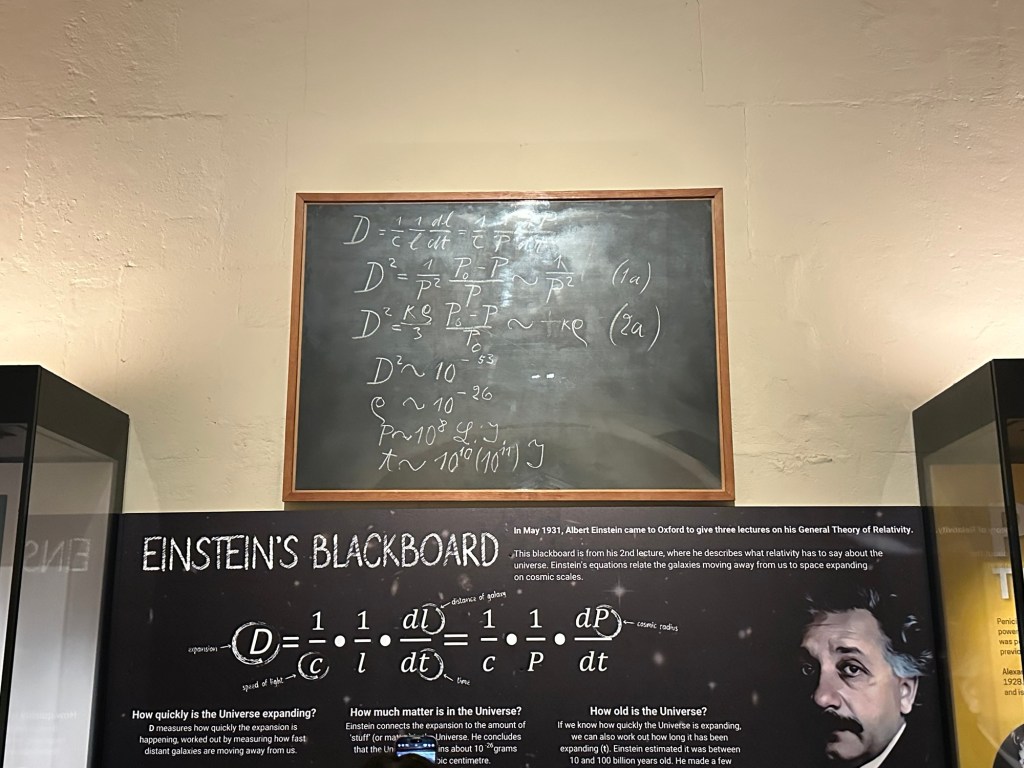 D = 1/c 1/l dl/dt = 1/c 1/P dP/dt
D² = 1/P² P₀-P/P ~ 1/P² (1a)
D² = κρ/3 P₀-P/P₀ ~ κρ (2a)
D² ~ 10⁻⁵³
ρ ~ 10⁻²⁶
P ~ 10⁸ L.J.
t ~ 10¹⁰(10¹¹) J
EINSTEIN'S BLACKBOARD
In May 1931, Albert Einstein came to Oxford to give three lectures on his General Theory of Relativity.
This blackboard is from his 2nd lecture, where he describes what relativity has to say about the
universe. Einstein's equations relate the galaxies moving away from us to space expanding
on cosmic scales.
distance of galaxy
expansion
D = 1/c • 1/l • dl/dt = 1/c • 1/P • dP/dt
cosmic radius
speed of light
time
How quickly is the Universe expanding?
D measures how quickly the expansion is
happening, worked out by measuring how fast
distant galaxies are moving away from us.
How much matter is in the Universe?
Einstein connects the expansion to the amount of
'stuff' (or Universe. He concludes
that the about 10⁻²⁶ grams
centimetre.
How old is the Universe?
If we know how quickly the Universe is expanding,
we can also work out how long it has been
expanding (t). Einstein estimated it was between
10 and 100 billion years old. He made a few
1928